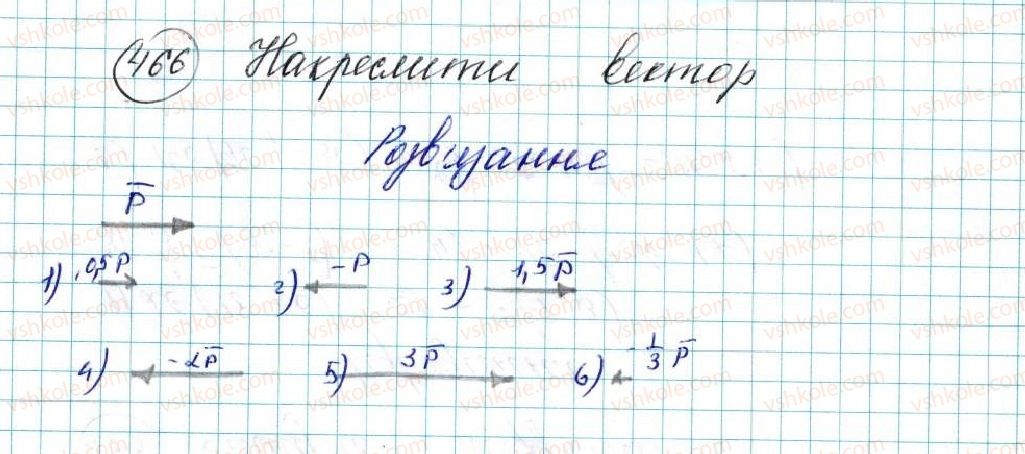 466 Накреслити вектор
Розвязання
p̅
1) 0,5p 2) -p 3) 1,5p̅
4) -2p̅ 5) 3p̅ 6) -1/3 p̅